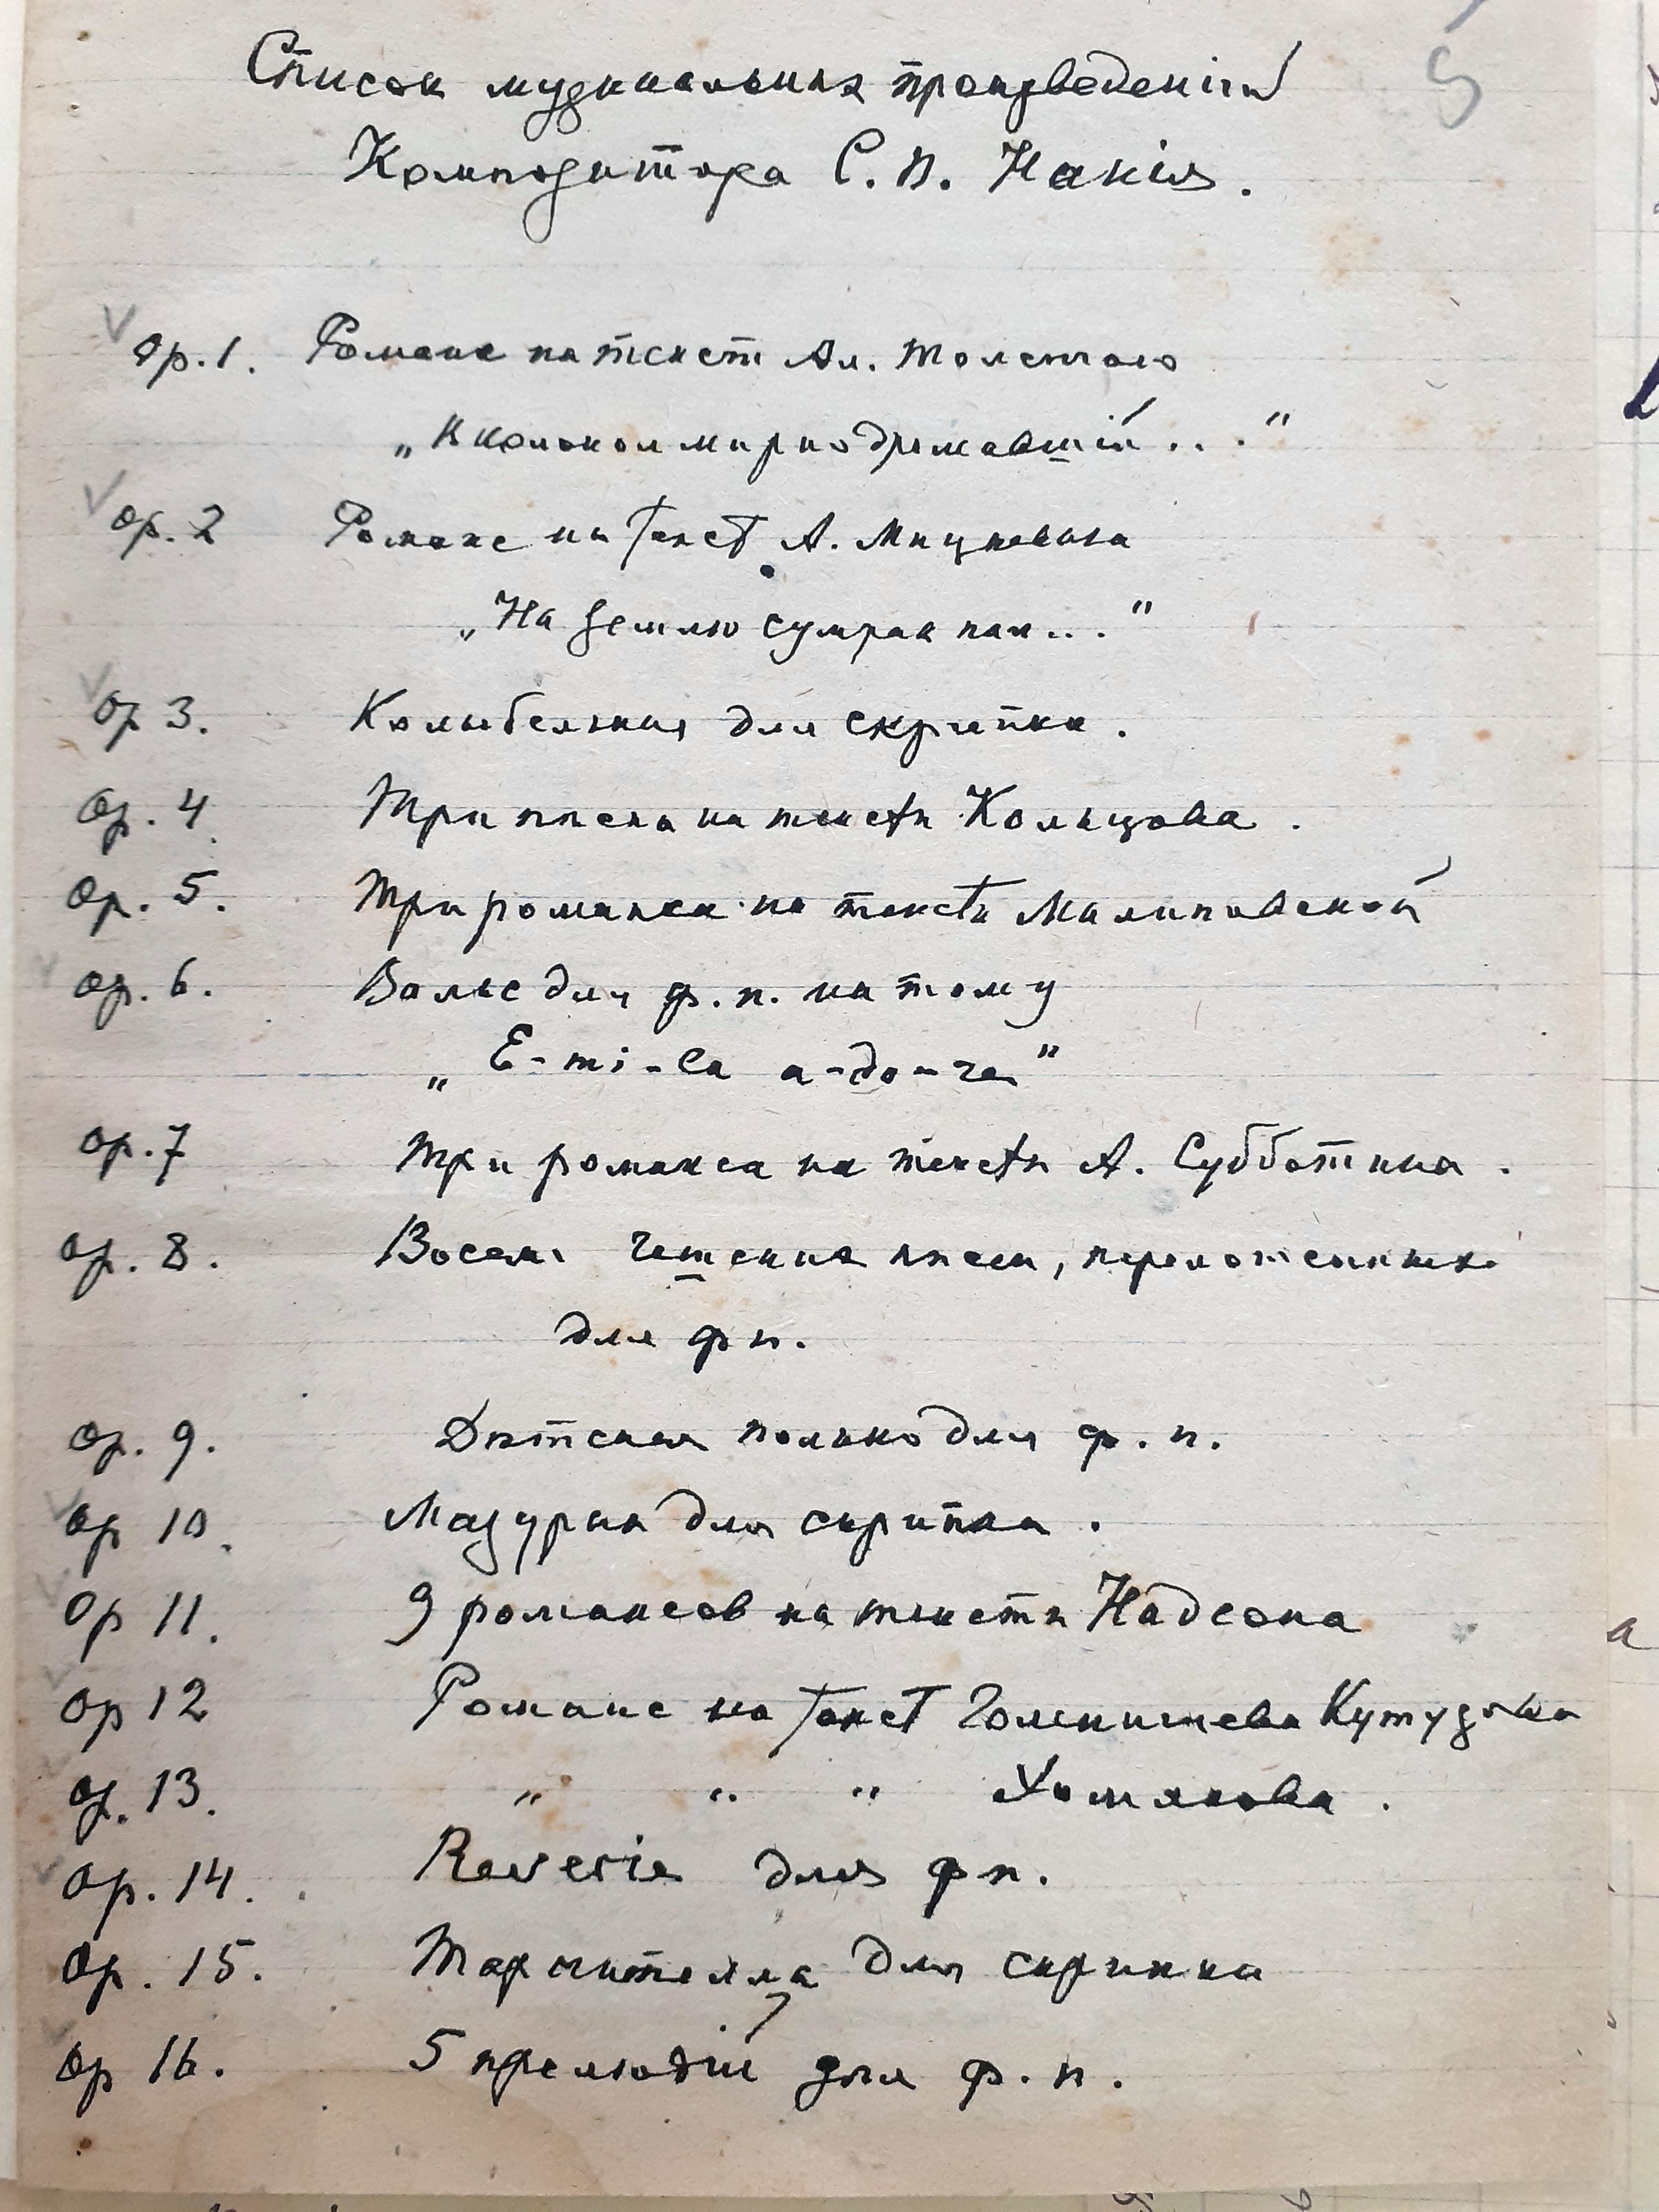 5
Список музыкальных произведенiй
Композитора С. П. Накiя.
Op. 1. Романс на текст Ал. Толстого
„Колокол мирно дремавшiй . . . "
Op. 2 Романс на текст А. Мицкевича
„На землю сумрак пал . . . "
Op 3. Колыбельная для скрипки.
Op. 4 Три песни на тексты Кольцова.
Op. 5. Три романса на тексты Малиновской
Op. 6. Вальс для ф. п. на тему
„E-mi-la a-do-"
Op. 7 Три романса на тексты А. Субботина.
Op. 8. Восемь чешских песен, переложенных
для ф п.
Op. 9. Детская полька для ф. п.
Op 10. Мазурка для скрипки.
Op 11. 9 романсов на тексты Надсона
Op 12 Романс на текст Голенищева Кутузова
Op. 13. " " " Хомякова.
Op. 14. Reverie для ф п.
Op. 15. Тарантелла для скрипки
Op 16. 5 прелюдiй для ф. п.